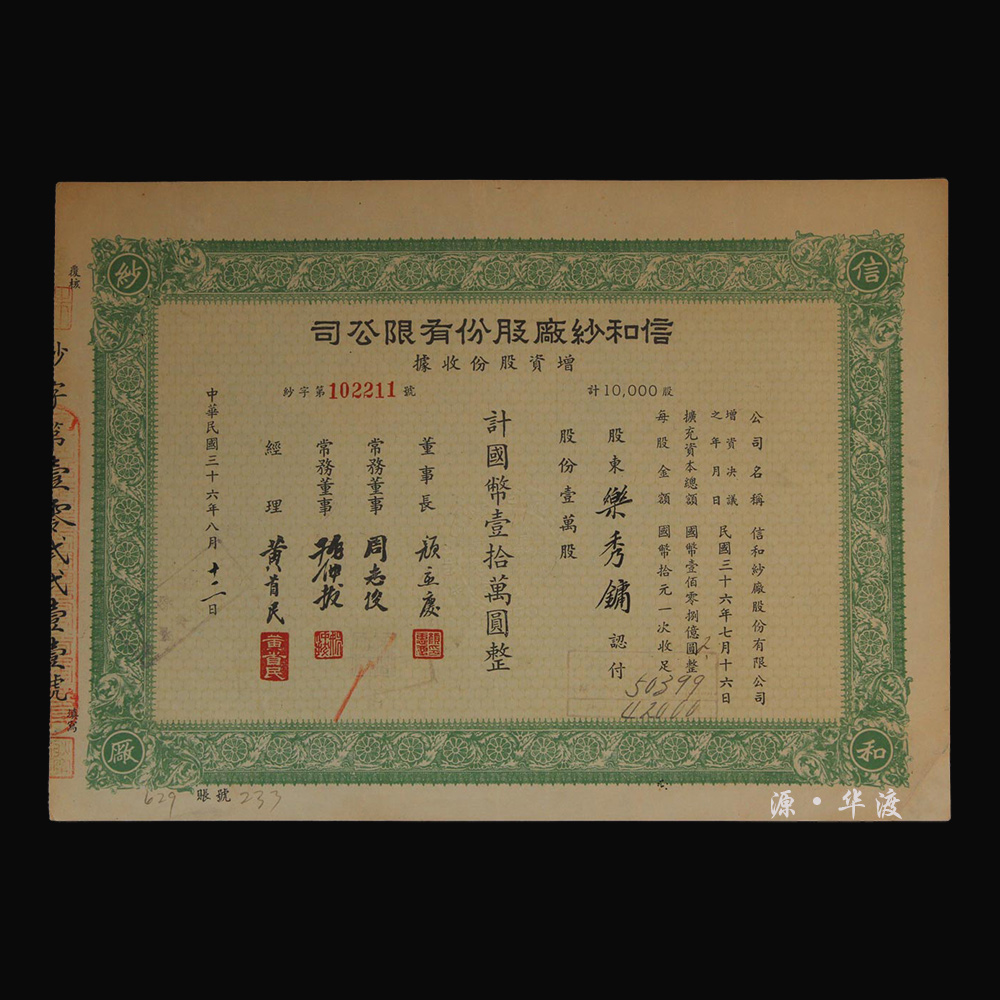 信和紗廠股份有限公司
增資股份收據
計10,000股
紗字第102211號
公司名稱 信和紗廠股份有限公司
增資決議之年月日 民國三十六年七月十六日
擴充資本總額 國幣壹佰零捌億圓整
每股金額 國幣拾元一次收足
股東 樂秀鏞 認付
股份壹萬股
計國幣壹拾萬圓整
董事長 顏立慶
常務董事 周志俊
常務董事
經理 黃首民
中華民國三十六年八月十二日
信
和
紗
廠
覆核
紗字第壹零貳貳壹壹號
填寫
黃首民
50399
42000
629 賬號 233
源·华渡